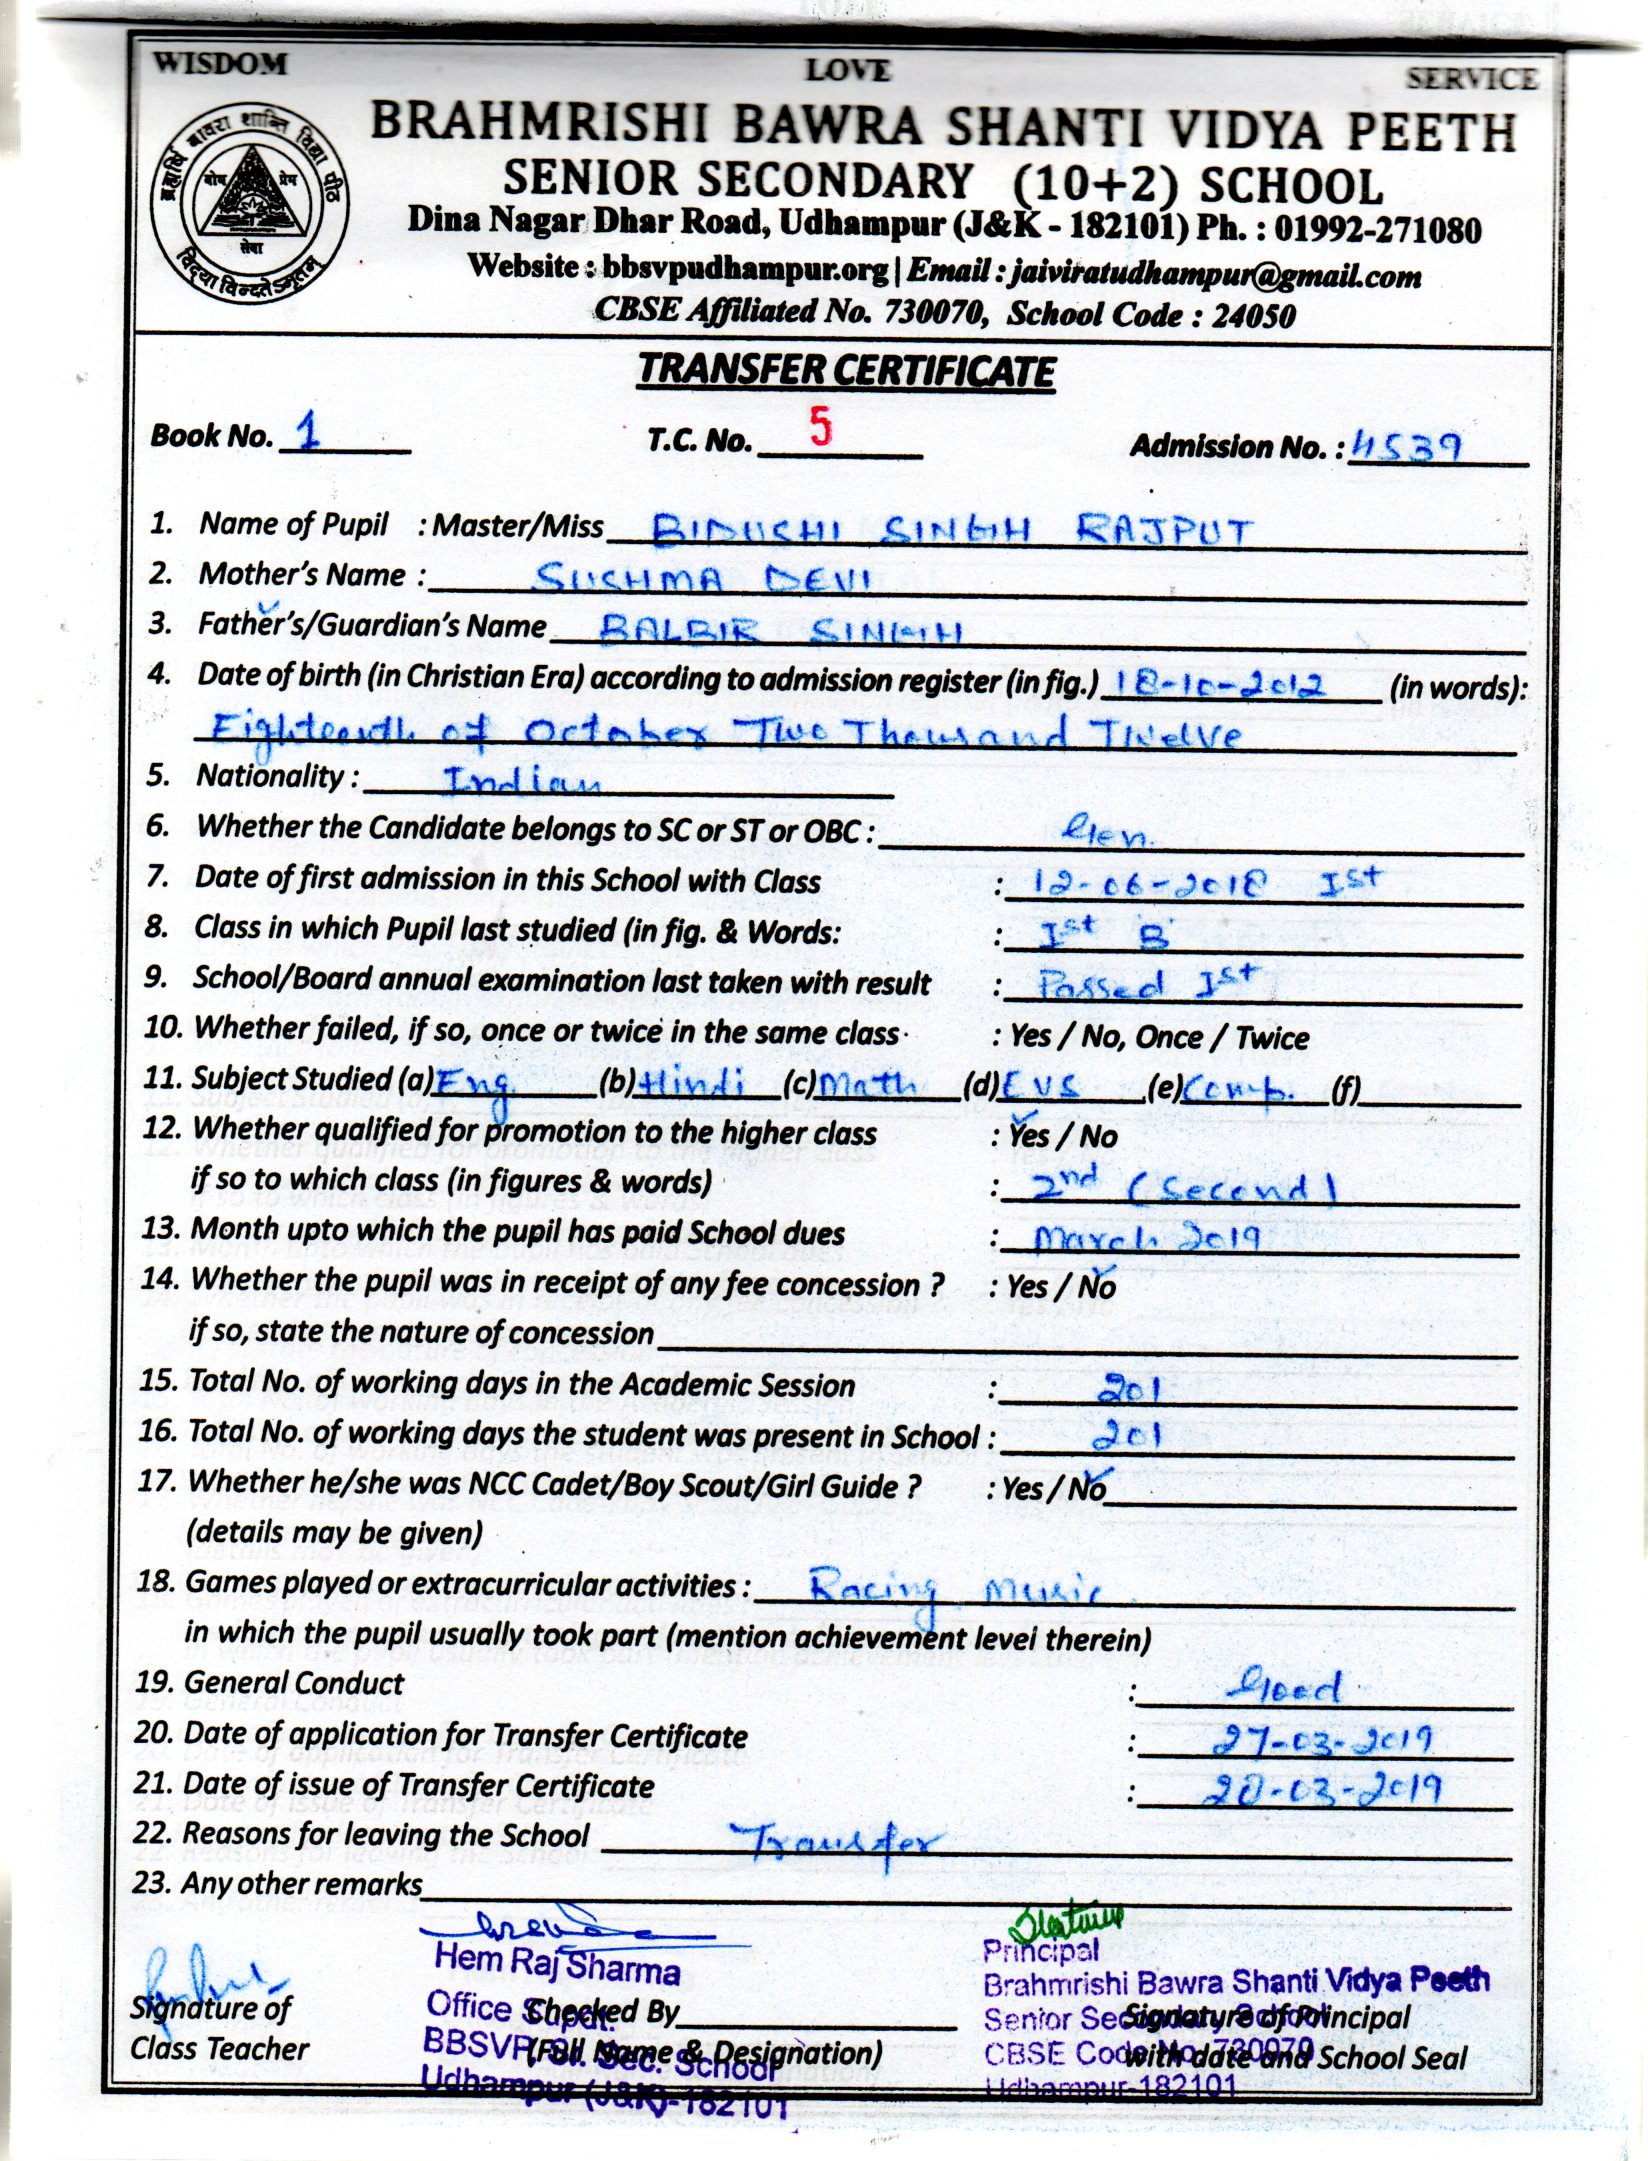 WISDOM LOVE SERVICE
ब्रह्मर्षि बावरा शान्ति विद्या पीठ
बोध प्रेम
सेवा
विद्यया विन्दतेऽमृतम्
BRAHMRISHI BAWRA SHANTI VIDYA PEETH
SENIOR SECONDARY (10+2) SCHOOL
Dina Nagar Dhar Road, Udhampur (J&K - 182101) Ph. : 01992-271080
Website : bbsvpudhampur.org | Email : jaiviratudhampur@gmail.com
CBSE Affiliated No. 730070, School Code : 24050
TRANSFER CERTIFICATE
Book No. 1 T.C. No. 5 Admission No. : 4539
1. Name of Pupil : Master/Miss BIDUSHI SINGH RAJPUT
2. Mother's Name : SUSHMA DEVI
3. Father's/Guardian's Name BALBIR SINGH
4. Date of birth (in Christian Era) according to admission register (in fig.) 18-10-2012 (in words):
Eighteenth of October Two Thousand Twelve
5. Nationality : Indian
6. Whether the Candidate belongs to SC or ST or OBC : Gen.
7. Date of first admission in this School with Class : 12-06-2018 Ist
8. Class in which Pupil last studied (in fig. & Words: : Ist B
9. School/Board annual examination last taken with result : Passed Ist
10. Whether failed, if so, once or twice in the same class : Yes / No, Once / Twice
11. Subject Studied (a) Eng (b) Hindi (c) Math (d) EVS (e) Comp. (f)
12. Whether qualified for promotion to the higher class : Yes / No
if so to which class (in figures & words) : 2nd (Second)
13. Month upto which the pupil has paid School dues : March 2019
14. Whether the pupil was in receipt of any fee concession ? : Yes / No
if so, state the nature of concession
15. Total No. of working days in the Academic Session : 201
16. Total No. of working days the student was present in School : 201
17. Whether he/she was NCC Cadet/Boy Scout/Girl Guide ? : Yes / No
(details may be given)
18. Games played or extracurricular activities : Racing, Music
in which the pupil usually took part (mention achievement level therein)
19. General Conduct : Good
20. Date of application for Transfer Certificate : 27-03-2019
21. Date of issue of Transfer Certificate : 28-03-2019
22. Reasons for leaving the School Transfer
23. Any other remarks
Hem Raj Sharma
Office Supdt.
BBSVP Sr. Sec. School
Udhampur (J&K)-182101
Principal
Brahmrishi Bawra Shanti Vidya Peeth
Senior Secondary School
CBSE Code No. 730070
Udhampur-182101
Signature of
Class Teacher
Checked By
(Full Name & Designation)
Signature of Principal
with date and School Seal